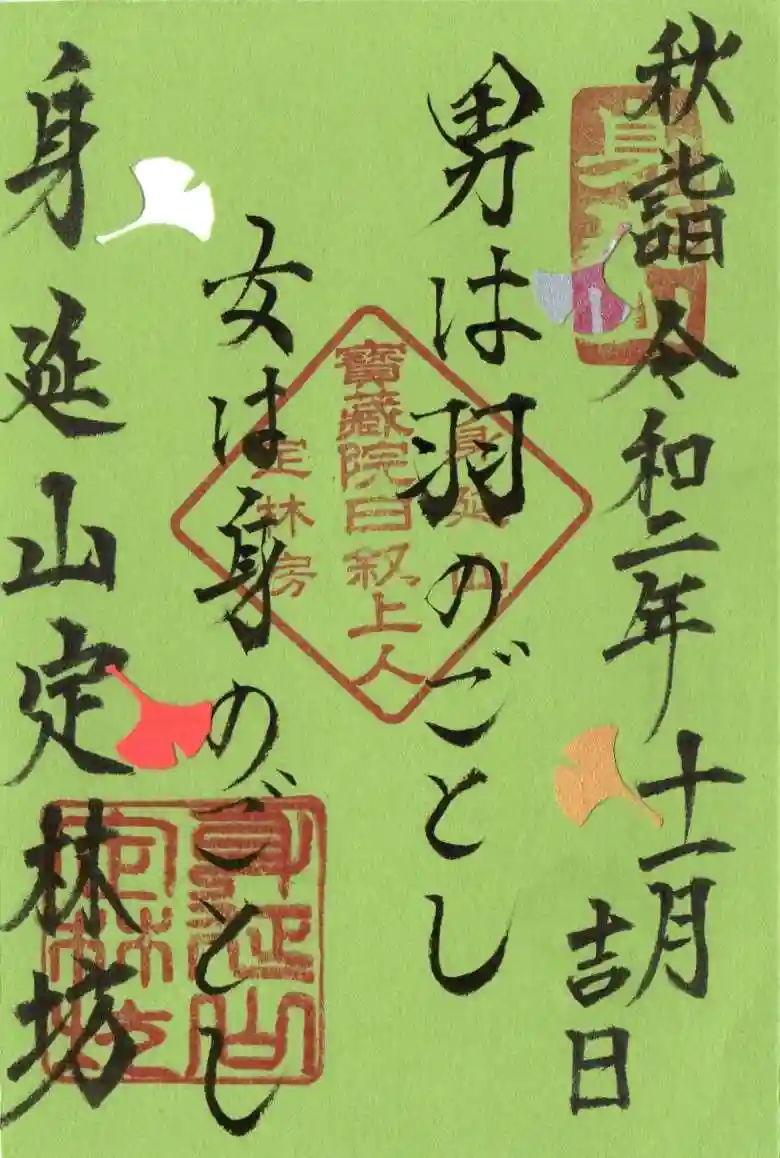 秋詣 令和二年 十一月
吉日
男は羽のごとし
女は身のごとし
身延山定林坊
身延山
身延山
寶蔵院日叙上人
定林房
身延山
定林坊